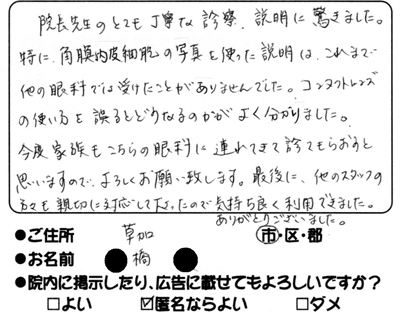 院長先生のとても丁寧な診察、説明に驚きました。
特に、角膜内皮細胞の写真を使った説明は、これまで
他の眼科では受けたことがありませんでした。コンタクトレンズ
の使い方を誤るとどうなるのかがよく分かりました。
今度家族もこちらの眼科に連れてきて診てもらおうと
思いますので、よろしくお願い致します。最後に、他のスタッフの
方々も親切に対応して下さったので気持ち良く利用できました。
ありがとうございました。
●ご住所 草加 市・区・郡
●お名前 橋
●院内に掲示したり、広告に載せてもよろしいですか?
□よい ☑匿名ならよい □ダメ